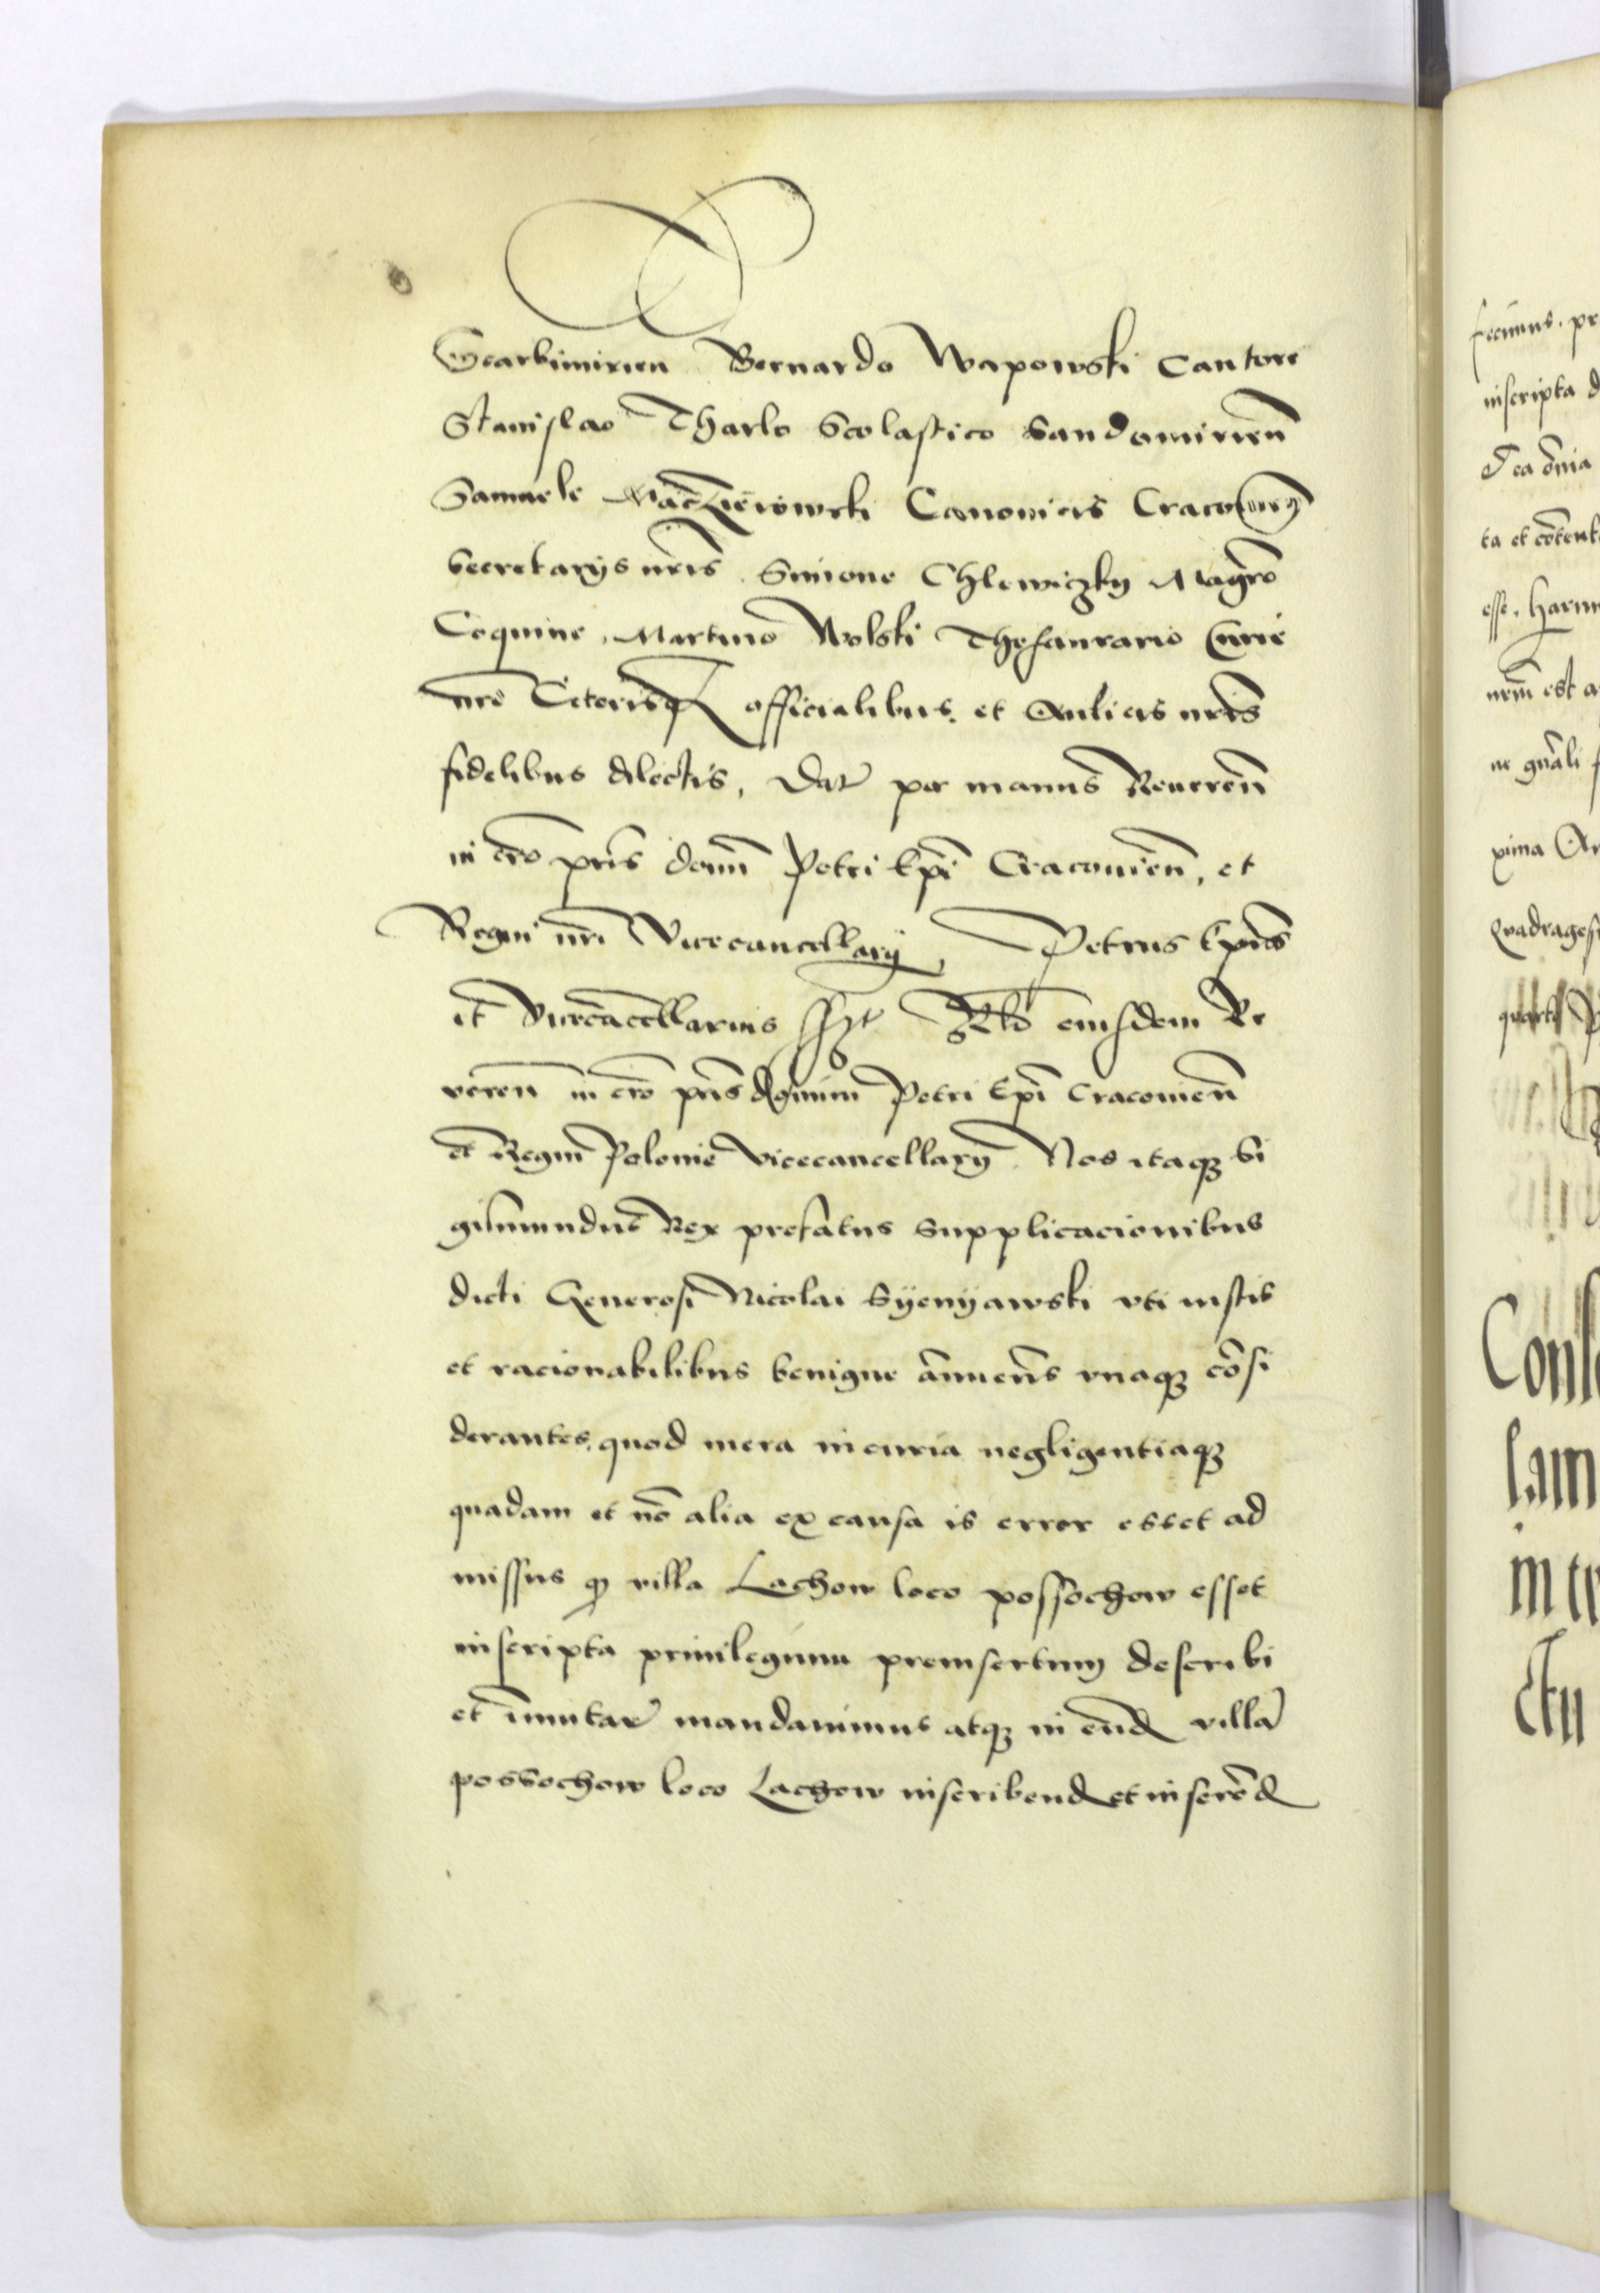 Scarbimirien Bernardo Wapowski Cantore
Stanislao Tharlo Scolastico Sandomirien̄
Samuele Maczieiowski Canonicis Cracouien̄
Secretarys nr̄is Simone Chlewiczky Magr̄o
Coquine, Martino Wolski Thesaurario Curie
nr̄e Ceterisq officialibus et Aulicis nr̄is
fidelibus dilectis, Dat̄ per manus Reueren̄
in cr̄o pr̄is domn̄ Petri Ep̄i Cracouien̄, et
Regni nr̄i Vicecancellarÿ, Petrus Ep̄us
et Vicecācellarius sszt Rlō eiusdem Re
veren̄ in cr̄o pr̄is domini Petri Ep̄i Cracouien̄
et Regni Polonie Vicecancellarÿ Nos itaq; Si
gismundus Rex prefatus supplicacionibus
dicti Generosi Nicolai Syenÿawski vti iustis
et racionabilibus benigne ānuen̄s vnaq; cōsi
derantes, quod mera incuria negligentiaq;
quadam et nō alia ex causa is error esset ad
missus q villa Lachow loco possochow esset
inscripta priuilegium preinsertum describi
et īmutar̄ mandauimus atq; in eand villā
possochow loco Lachow inscribend et inserēd
fecimus, pr
inscripta d
Et ea ōnia
ta et cōtent
esse, harum
nem̄ est a
ne gn̄ali f
xima An
Quadrages
quarto P
Cons
lam
in tr
ctu